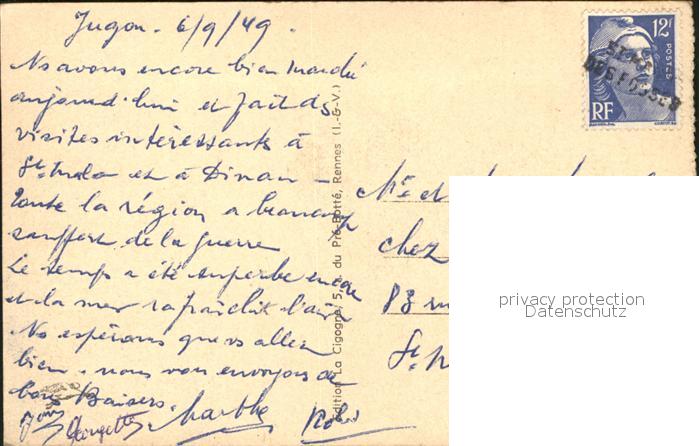 Jugon. 6/9/49.
Ns avons encore bien marché
aujourd'hui et fait ds
visites intéressants à
St. Malo et à Dinan -
toute la région a beaucoup
souffert de la guerre
Le temps a été superbe encore
et la mer rafraichit l'air
Ns espérons que vs allez
bien. nous vous envoyons de
bons Baisers.
Georgette Marthe
Édition La Cigogne, 5, du Pré-Botté, Rennes (I.-&-V.)
12F
POSTES
RF
Mr et
chez
83 ru
St.
privacy protection
Datenschutz